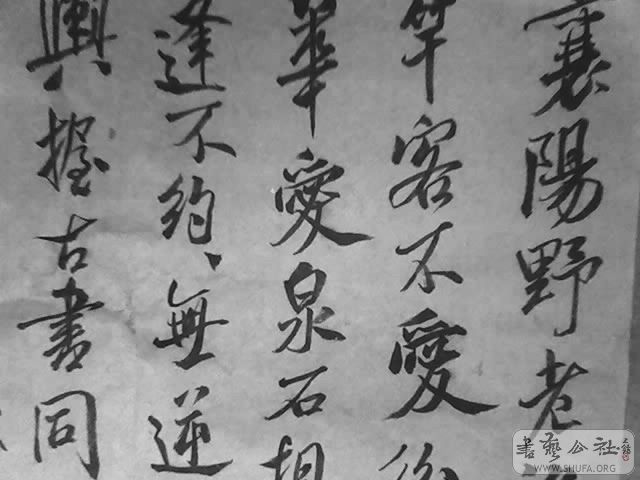 襄陽野老
竿客不愛
華愛泉石
逢不約、無逆
興握古書同
書藝公社
WWW.SHUFA.ORG